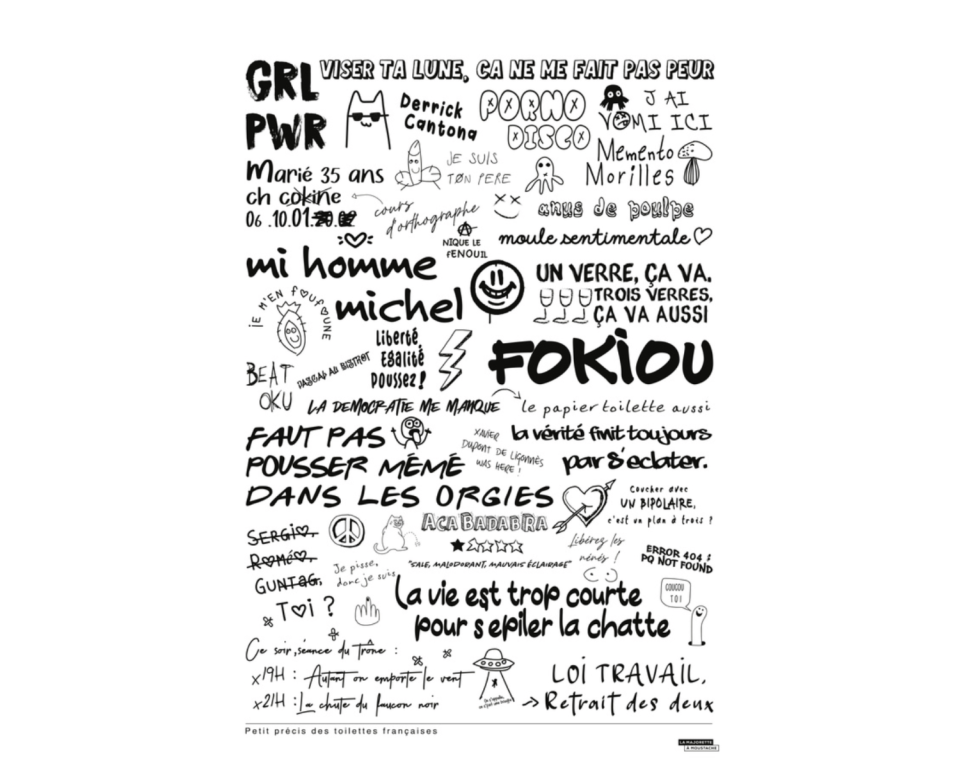 GRL
PWR
VISER TA LUNE, ÇA NE ME FAIT PAS PEUR
Derrick
Cantona
PORNO
DISCO
J'AI
VOMI ICI
Memento
Morilles
Marié 35 ans
ch cokine
06.10.01.
JE SUIS
TON PERE
cours
d'orthographe
anus de poulpe
NIQUE LE
FENOUIL
moule sentimentale
mi homme
michel
UN VERRE, ÇA VA.
TROIS VERRES,
ÇA VA AUSSI
JE M'EN FOUFOUNE
Liberté,
Egalité
poussez!
FOKIOU
BEAT
OKU
PASCAL AU BISTROT
LA DEMOCRATIE ME MANQUE
le papier toilette aussi
FAUT PAS
POUSSER MÉMÉ
DANS LES ORGIES
XAVIER
DUPONT DE LIGONNÈS
WAS HERE !
la vérité finit toujours
par s'eclater.
Coucher avec
UN BIPOLAIRE,
c'est un plan à trois ?
SERGIO,
Roméo,
GUNTAG,
Toi ?
ACABADABRA
"SALE, MALODORANT, MAUVAIS ÉCLAIRAGE"
Libérez les
nénés !
ERROR 404 :
PQ NOT FOUND
Je pisse,
donc je suis
La vie est trop courte
pour s epiler la chatte
COUCOU
TOI
Ce soir, séance du trône :
x19H : Autant on emporte le vent
x21H : La chute du faucon noir
LOI TRAVAIL,
→ Retrait des deux
Petit précis des toilettes françaises
LA MAJORETTE
& MOUSTACHE